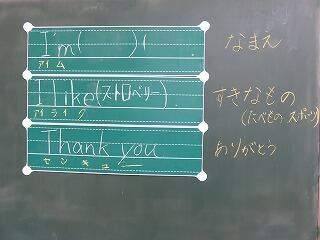 I'm (        )
アイム
なまえ
I like (ストロベリー)
アイ ライク
すきなもの
(たべもの スポーツ)
Thank you
センキュー
ありがとう